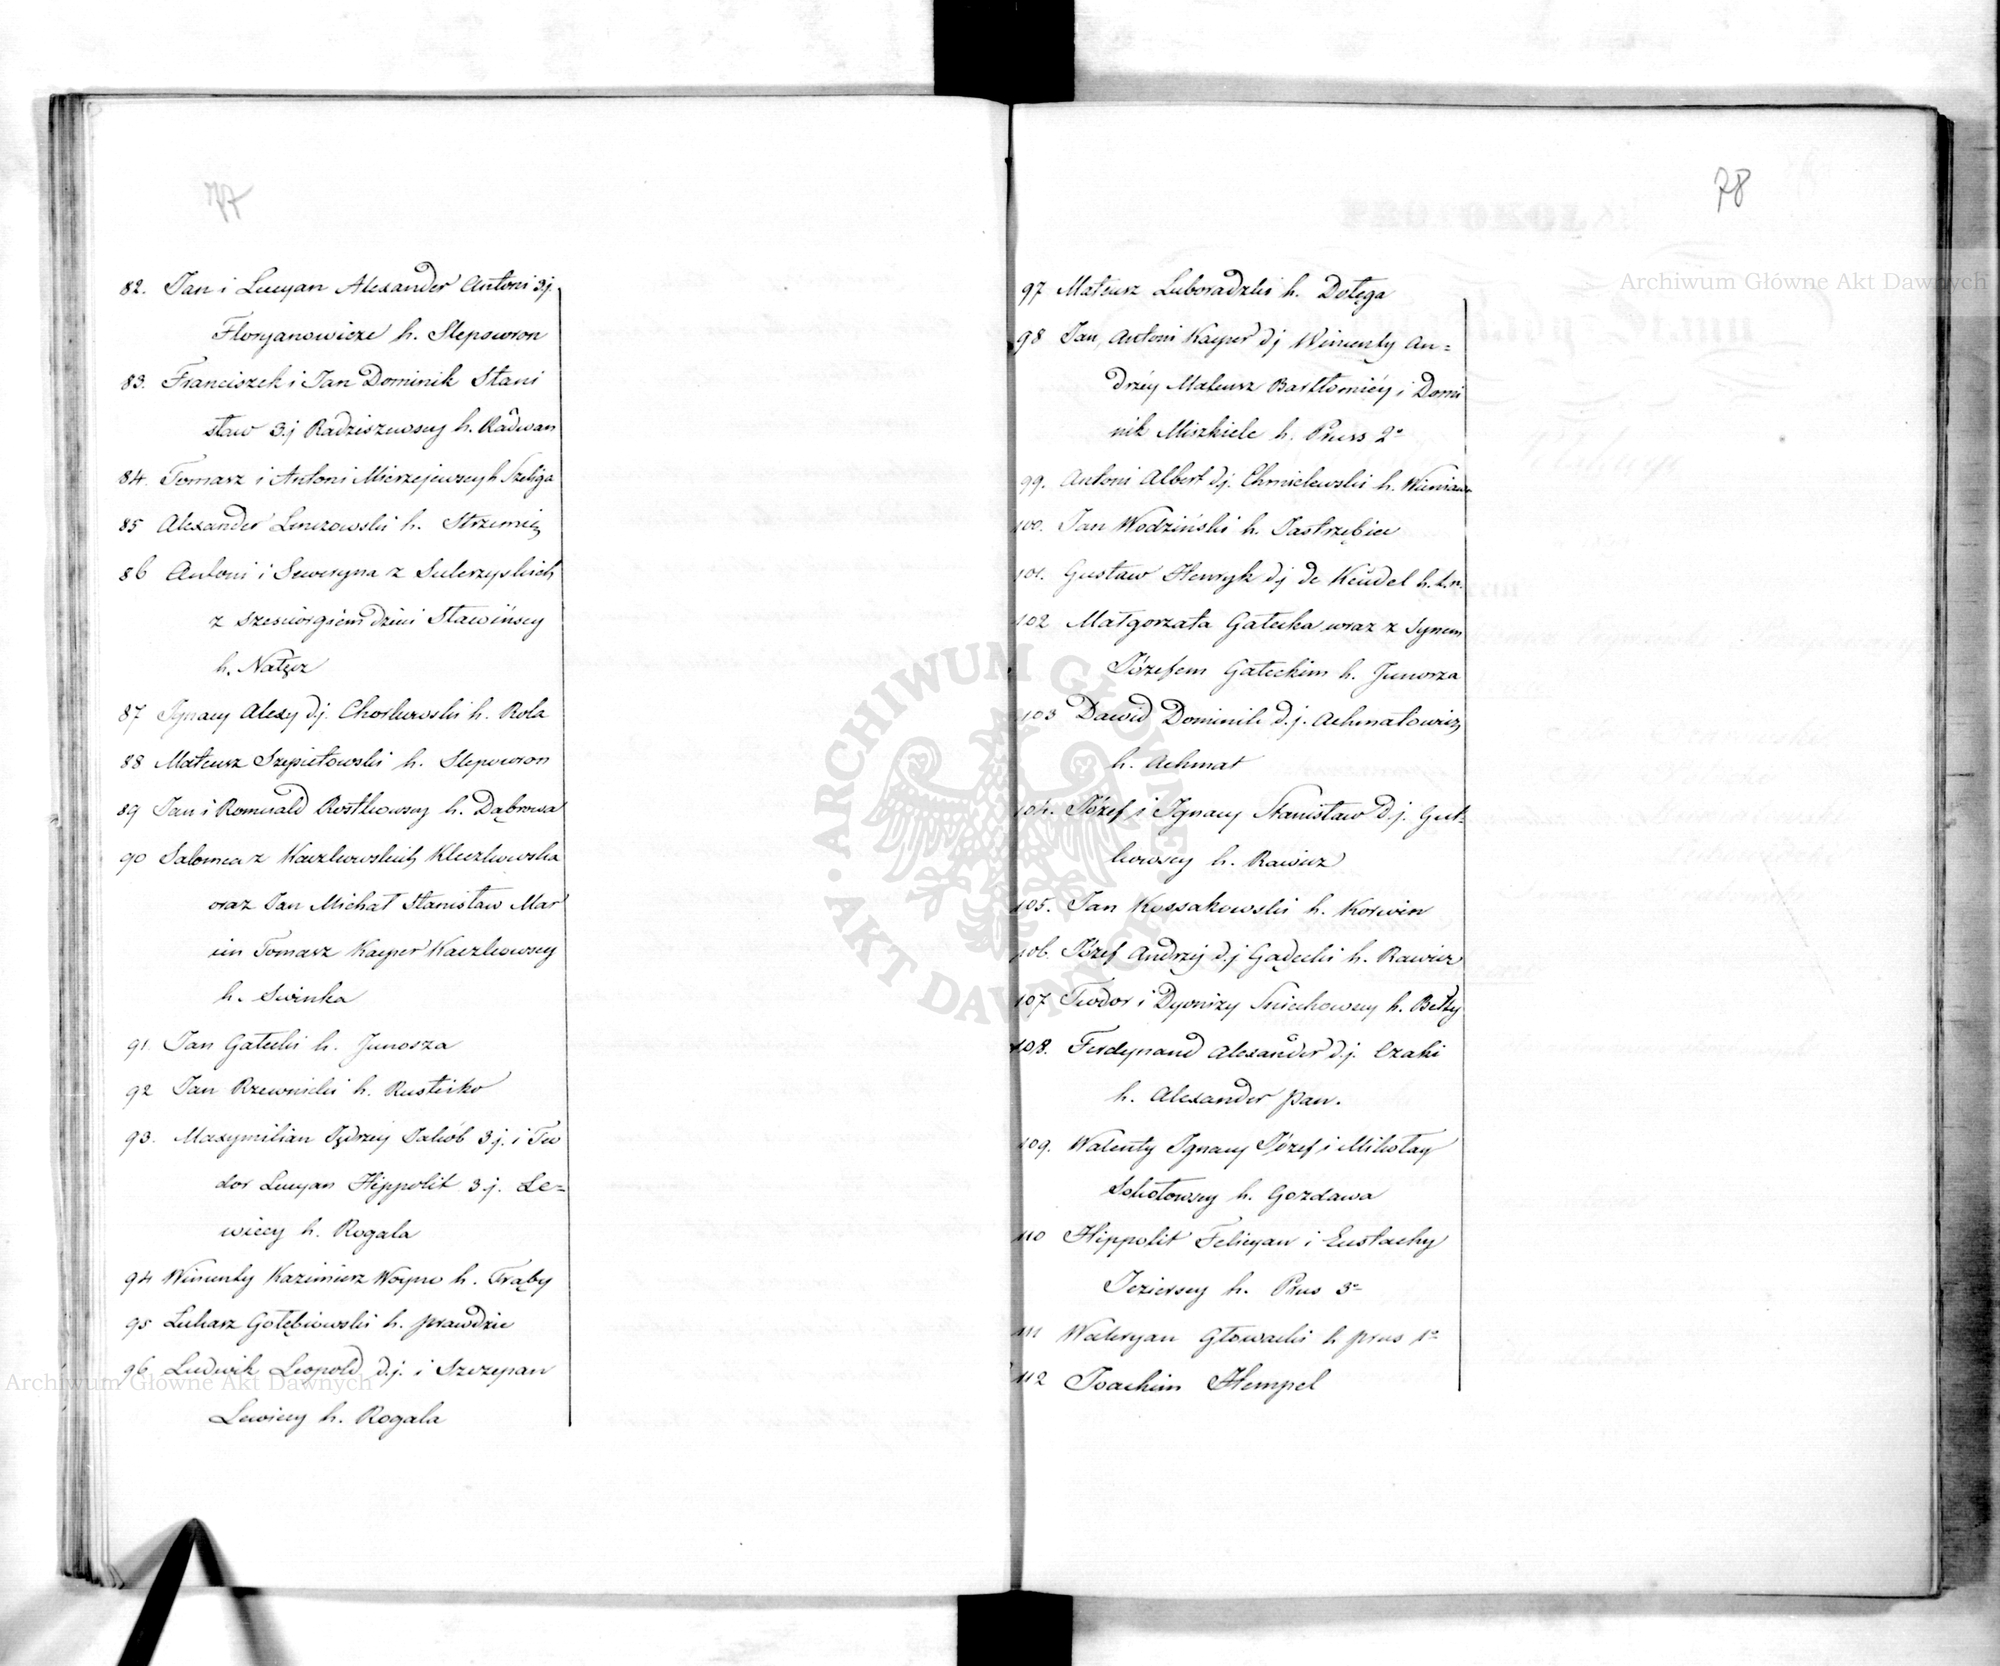 77
82. Jan i Lucyan Alexander Antoni 3j.
Floryanowicze h. Slepowron
83. Franciszek i Jan Dominik Stani
sław 3.j Radziszewscy h. Radwan
84. Tomasz i Antoni Mierzejewscy h Szeliga
85 Alexander Lenczowski h. Strzemię
86 Antoni i Seweryna z Sulerzyskich
z sześciorgiem dzieci Sławińscy
h. Nałęcz
87 Ignacy Alexy d.j. Chosłowski h. Rola
88 Mateusz Szepietowski h. Slepowron
89 Jan i Romuald Rostkowscy h. Dąbrowa
90 Salomea z Kaczkowskich Kleczkowska
oraz Jan Michał Stanisław Mar
cin Tomasz Kacper Kaczkowscy
h. Swinka
91. Jan Gałecki h. Junosza
92 Jan Rzewnicki h. Rustéiko
93. Maxymilian Jędrzej Jakób 3.j. i Teo
dor Lucyan Hippolit 3.j. Le=
wiccy h. Rogala
94 Wincenty Kazimierz Woyno h. Trąby
95 Łukasz Gołębiowski h. prawdzic
96. Ludwik Leopold d.j. i Szczepan
Lewiccy h. Rogala
78
97 Mateusz Luboradzki h. Dołęga
98 Jan, Antoni Kacper dj Wincenty An=
drzéy Mateusz Bartłomiéy i Domi
nik Miszkiele h. Pruss 2°
99. Antoni Albert d.j. Chmielewski h. Wieniawa
100. Jan Wodziński h. Jastrzębiec
101. Gustaw Henryk dj de Keudel h. t. n.
102 Małgorzata Gałecka wraz z synem
Józefem Gałeckim h. Junosza
103 Dawid Dominik d.j. Achmatowicz
h. Achmat
104. Józef i Ignacy Stanisław d.j. Gut=
kowscy h. Rawicz
105. Jan Kossakowski h. Korwin
106. Józef Andrzej d.j Gądecki h. Rawicz
107. Teodor i Dyonizy Śniechowscy h. Bełty
108. Ferdynand Alexander d.j. Czaki
h. Alexander Pan.
109. Walenty Ignacy Józef i Mikołay
Sokołowscy h. Gozdawa
110 Hippolit Felicyan i Eustachy
Jezierscy h. Prus 3°
111 Waleryan Głowacki h prus 1°
112 Joachim Hempel
Archiwum Główne Akt Dawnych
Archiwum Główne Akt Dawnych
ARCHIWUM GŁÓWNE AKT DAWNYCH